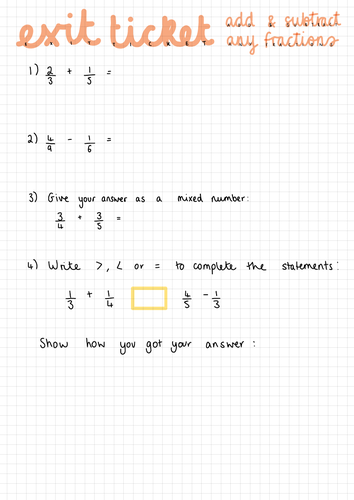 exit ticket add & subtract any fractions
EXIT TICKET
1) 2/3 + 1/5 =
2) 4/9 - 1/6 =
3) Give your answer as a mixed number:
3/4 + 3/5 =
4) Write >, < or = to complete the statements:
1/3 + 1/4 4/5 - 1/3
Show how you got your answer: